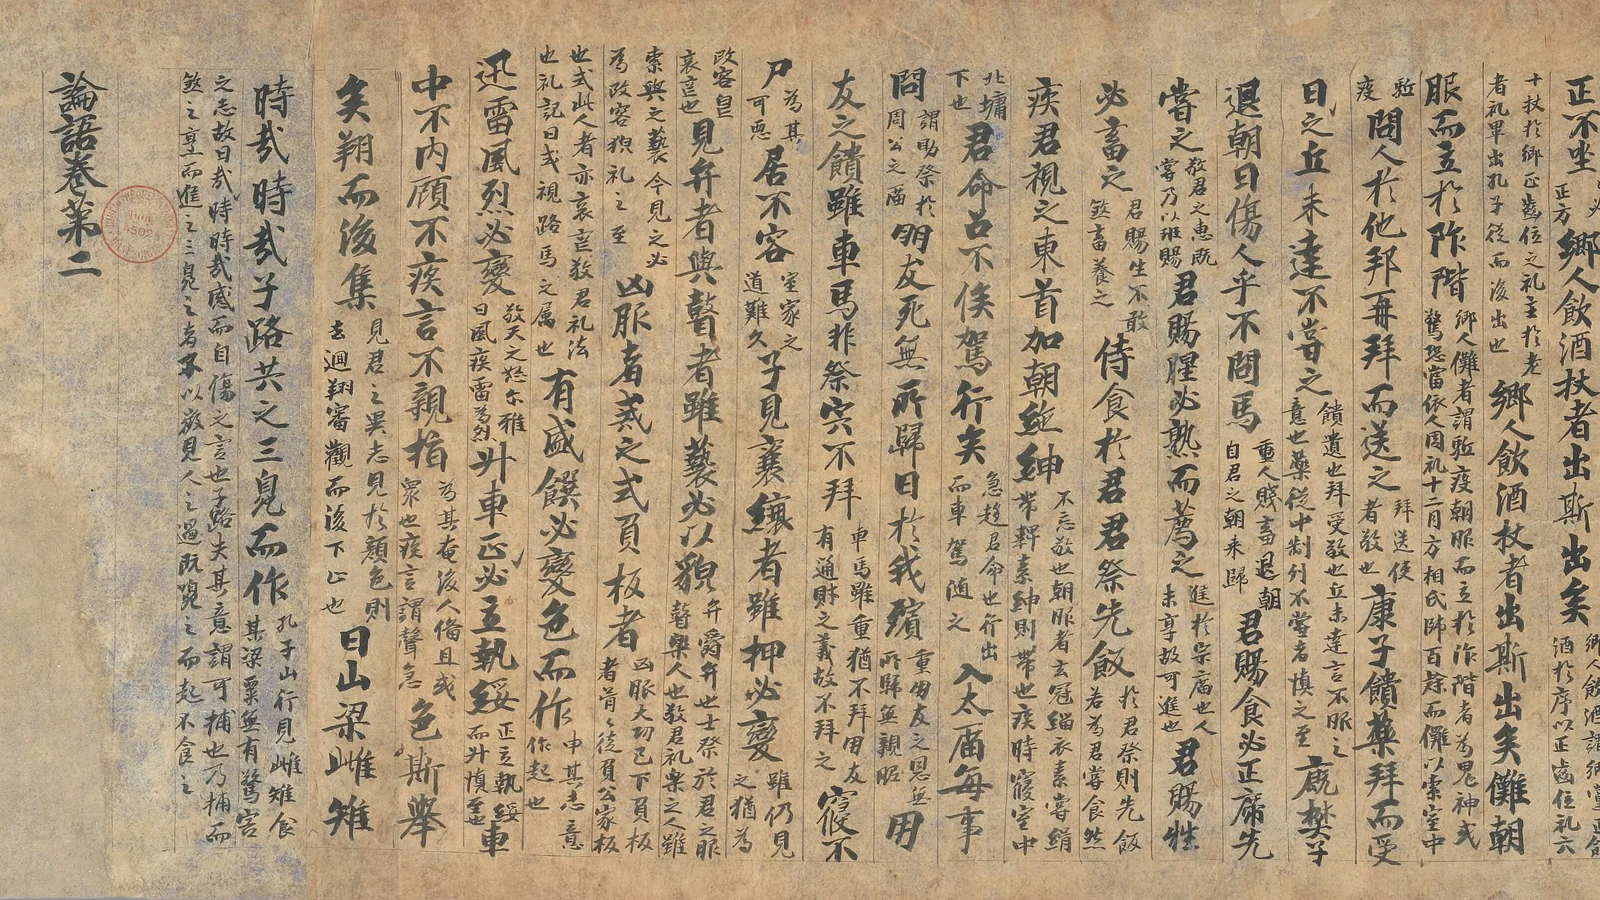 正不坐正方鄉人飲酒杖者出斯出矣
十杖於鄉正齒位之礼主於老者礼畢出孔子從而後出也鄉人飲酒杖者出斯出矣儺朝
服而立於阼階鄉人儺者謂毆疫朝服而立於阼階者為鬼神或驚恐當依人周礼十二月方相氏帥百隸而儺以索室中
毆疫問人於他邦再拜而送之拜送使者敬也康子饋藥拜而受
曰丘未達不嘗之饋遺也拜受敬也丘未達言不服之意也藥從中制外不嘗者慎之至廄焚子
退朝曰傷人乎不問馬重人賤畜退朝自君之朝来歸君賜食必正席先
嘗之敬君之惠既嘗乃以班賜君賜腥必熟而薦之進於宗庿也人未享故可進也君賜牲
必畜之君賜生不敢煞畜養之侍食於君君祭先飯於君祭則先飯若為君嘗食然
疾君視之東首加朝絁紳不忘敬也朝服者玄冠緇衣素裳絹帶鞸素紳則帶也疾時寢室中
北墉下也君命召不俟駕行矣急趍君命也行出而車駕随之入太庿每事
問謂助祭於周公之庿朋友死無所歸曰於我殯重朋友之恩無所歸無親昵用
友之饋雖車馬非祭宍不拜車馬雖重猶不拜朋友有通財之義故不拜之寢不
尸為其可惡居不容室家之道難久子見襄纕者雖狎必變雖仍見之猶為
改容皃哀言也見弁者與瞽者雖褻必以貌弁爵弁也士祭於君之服瞽樂人也敬君礼樂之人雖
索與之褻今見之必為改容貌礼之至凶服者式之式負板者凶服大功已下負板者胥徒負公家板
也式此人者亦哀言敬君礼法也礼記曰式視路馬之属也有盛饌必變色而作申其志意作起也
迅雷風烈必變敬天之怒尔雅曰風疾雷為烈升車正必立執綏正立執綏而升慎至也車
中不内顧不疾言不親指為其奄後人俻且或衆也疾言謂聲急色斯舉
矣翔而後集見君之異志見於顏色則去迴翔審觀而後下止也曰山梁雌雉
時㢤時㢤子路共之三臭而作孔子山行見雌雉食其梁粟無有驚害
之志故曰㢤時時㢤感而自傷之言也子路失其意謂可捕也乃捕而
煞之享而進之三臭之者不以微見人之過既臭之而起不食之
論語卷第二